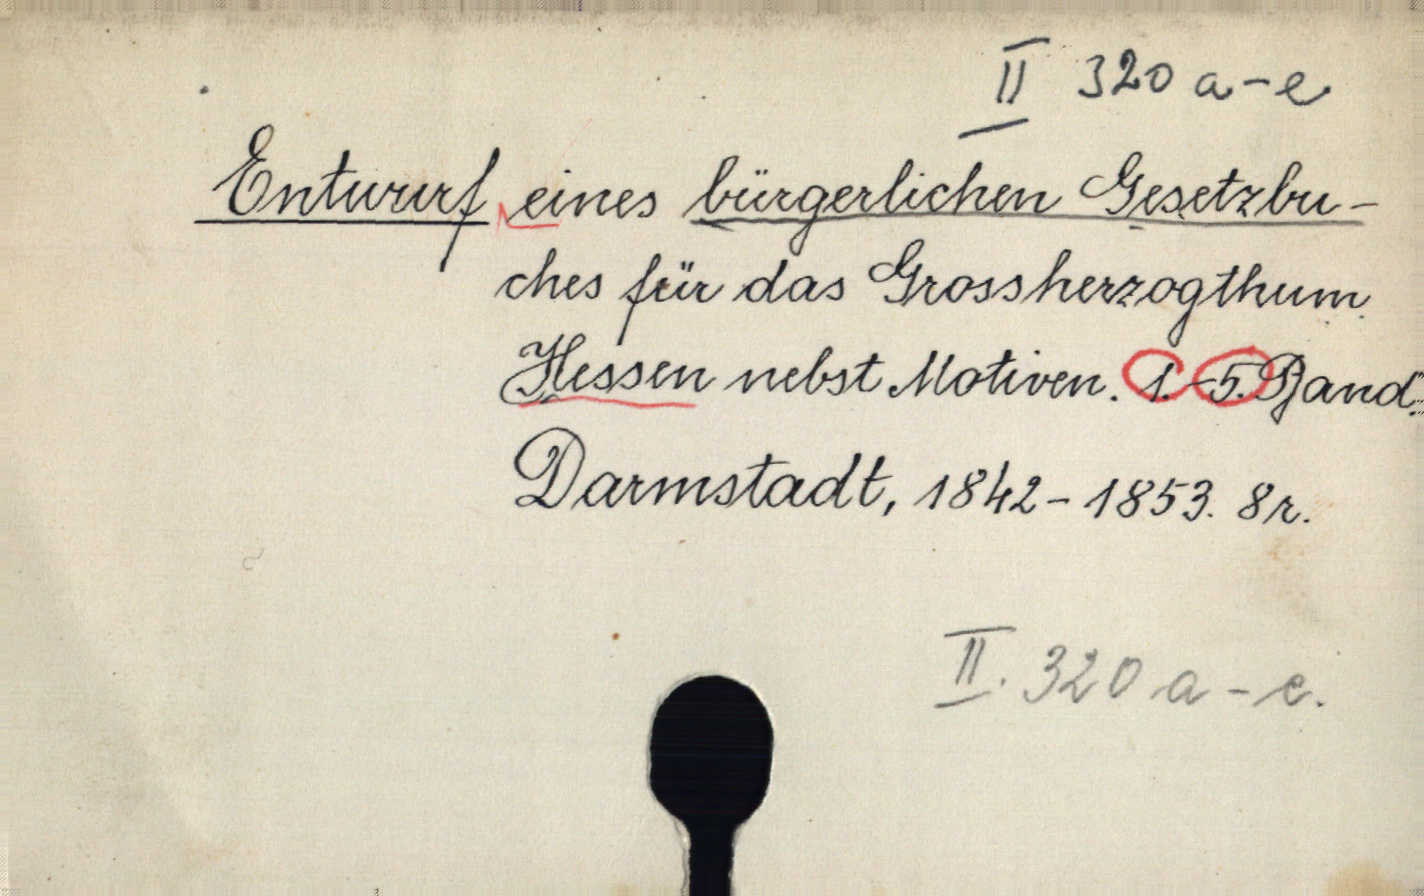 II 320 a-e.
Entwurf eines bürgerlichen Gesetzbu-
ches für das Grossherzogthum
Hessen nebst Motiven. 1.-5. Band.
Darmstadt, 1842-1853. 8r.
II. 320 a-e.